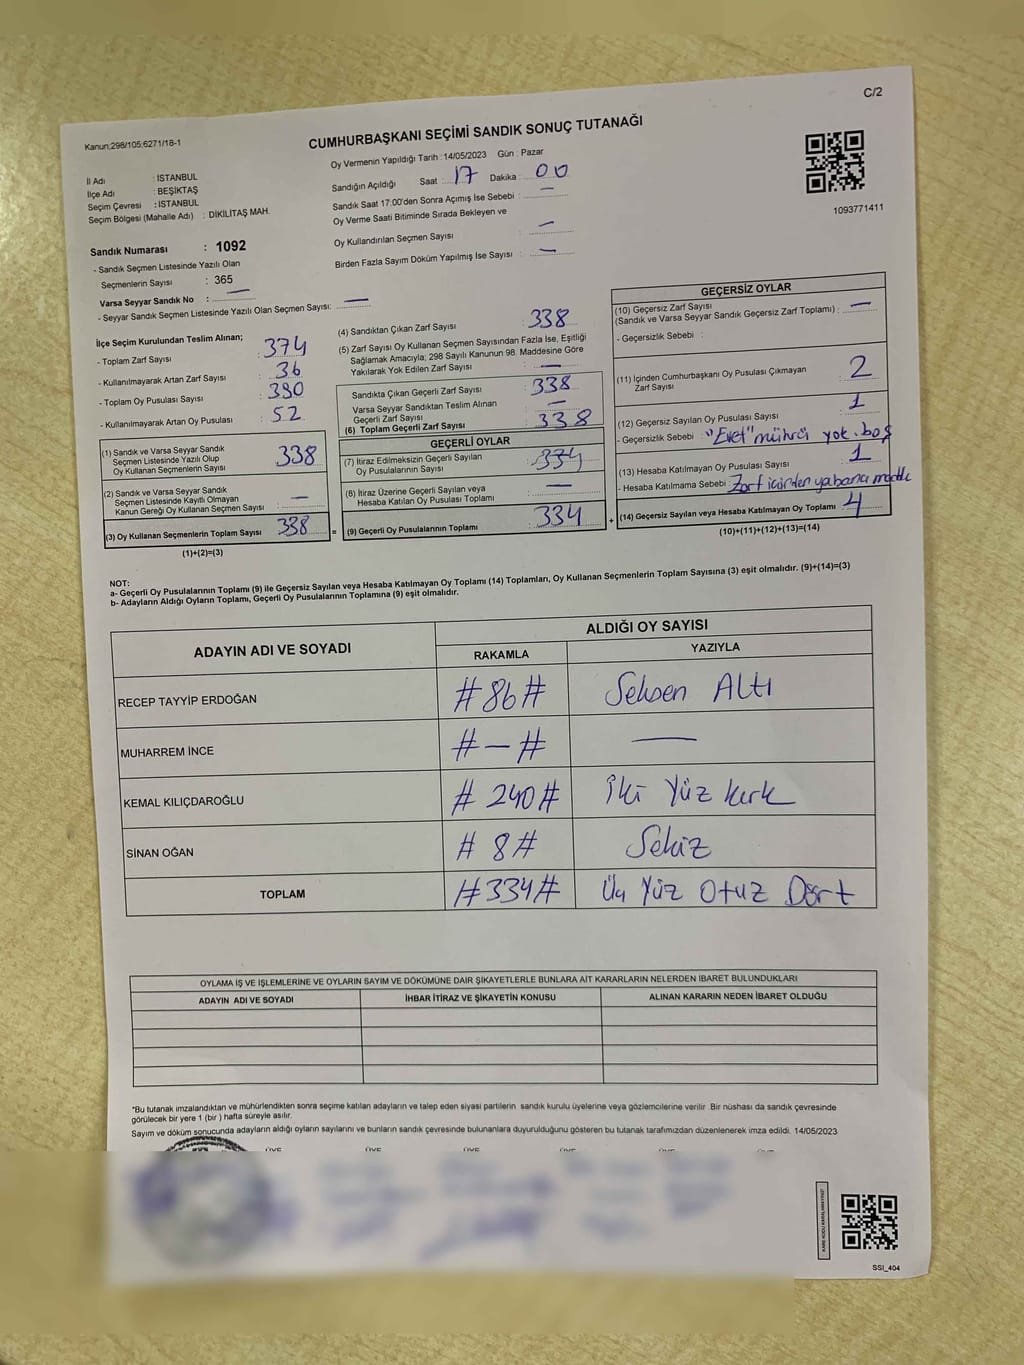 C/2
Kanun:298/105;6271/18-1
CUMHURBAŞKANI SEÇİMİ SANDIK SONUÇ TUTANAĞI
Oy Vermenin Yapıldığı Tarih : 14/05/2023 Gün : Pazar
İl Adı : İSTANBUL
İlçe Adı : BEŞİKTAŞ
Seçim Çevresi : İSTANBUL
Seçim Bölgesi (Mahalle Adı) : DİKİLİTAŞ MAH.
Sandığın Açıldığı Saat : 17 Dakika : 00
Sandık Saat 17:00'den Sonra Açımış İse Sebebi : —
Oy Verme Saati Bitiminde Sırada Bekleyen ve
Oy Kullandırılan Seçmen Sayısı : —
Birden Fazla Sayım Döküm Yapılmış İse Sayısı : —
1093771411
Sandık Numarası : 1092
- Sandık Seçmen Listesinde Yazılı Olan
Seçmenlerin Sayısı : 365
Varsa Seyyar Sandık No : —
- Seyyar Sandık Seçmen Listesinde Yazılı Olan Seçmen Sayısı: —
İlçe Seçim Kurulundan Teslim Alınan;
- Toplam Zarf Sayısı : 374
- Kullanılmayarak Artan Zarf Sayısı : 36
- Toplam Oy Pusulası Sayısı : 390
- Kullanılmayarak Artan Oy Pusulası : 52
(1) Sandık ve Varsa Seyyar Sandık
Seçmen Listesinde Yazılı Olup
Oy Kullanan Seçmenlerin Sayısı : 338
(2) Sandık ve Varsa Seyyar Sandık
Seçmen Listesinde Kayıtlı Olmayan
Kanun Gereği Oy Kullanan Seçmen Sayısı : —
(3) Oy Kullanan Seçmenlerin Toplam Sayısı : 338
(1)+(2)=(3)
(4) Sandıktan Çıkan Zarf Sayısı : 338
(5) Zarf Sayısı Oy Kullanan Seçmen Sayısından Fazla İse, Eşitliği
Sağlamak Amacıyla; 298 Sayılı Kanunun 98. Maddesine Göre
Yakılarak Yok Edilen Zarf Sayısı : —
Sandıkta Çıkan Geçerli Zarf Sayısı : 338
Varsa Seyyar Sandıktan Teslim Alınan
Geçerli Zarf Sayısı : —
(6) Toplam Geçerli Zarf Sayısı : 338
GEÇERLİ OYLAR
(7) İtiraz Edilmeksizin Geçerli Sayılan
Oy Pusulalarının Sayısı : 334
(8) İtiraz Üzerine Geçerli Sayılan veya
Hesaba Katılan Oy Pusulası Toplamı : —
= (9) Geçerli Oy Pusulalarının Toplamı : 334
GEÇERSİZ OYLAR
(10) Geçersiz Zarf Sayısı
(Sandık ve Varsa Seyyar Sandık Geçersiz Zarf Toplamı) : —
- Geçersizlik Sebebi :
(11) İçinden Cumhurbaşkanı Oy Pusulası Çıkmayan
Zarf Sayısı : 2
(12) Geçersiz Sayılan Oy Pusulası Sayısı : 1
- Geçersizlik Sebebi : "Evet" mührü yok. boş
(13) Hesaba Katılmayan Oy Pusulası Sayısı : 1
- Hesaba Katılmama Sebebi : Zarf içinden yabancı madde
+ (14) Geçersiz Sayılan veya Hesaba Katılmayan Oy Toplamı : 4
(10)+(11)+(12)+(13)=(14)
NOT:
a- Geçerli Oy Pusulalarının Toplamı (9) ile Geçersiz Sayılan veya Hesaba Katılmayan Oy Toplamı (14) Toplamları, Oy Kullanan Seçmenlerin Toplam Sayısına (3) eşit olmalıdır. (9)+(14)=(3)
b- Adayların Aldığı Oyların Toplamı, Geçerli Oy Pusulalarının Toplamına (9) eşit olmalıdır.
ADAYIN ADI VE SOYADI
ALDIĞI OY SAYISI
RAKAMLA YAZIYLA
RECEP TAYYİP ERDOĞAN #86# Seksen Altı
MUHARREM İNCE #—# —
KEMAL KILIÇDAROĞLU #240# İki Yüz kırk
SİNAN OĞAN #8# Sekiz
TOPLAM #334# Üç Yüz Otuz Dört
OYLAMA İŞ VE İŞLEMLERİNE VE OYLARIN SAYIM VE DÖKÜMÜNE DAİR ŞİKAYETLERLE BUNLARA AİT KARARLARIN NELERDEN İBARET BULUNDUKLARI
ADAYIN ADI VE SOYADI İHBAR İTİRAZ VE ŞİKAYETİN KONUSU ALINAN KARARIN NEDEN İBARET OLDUĞU
*Bu tutanak imzalandıktan ve mühürlendikten sonra seçime katılan adayların ve talep eden siyasi partilerin sandık kurulu üyelerine veya gözlemcilerine verilir. Bir nüshası da sandık çevresinde
görülecek bir yere 1 (bir ) hafta süreyle asılır.
Sayım ve döküm sonucunda adayların aldığı oyların sayılarını ve bunların sandık çevresinde bulunanlara duyurulduğunu gösteren bu tutanak tarafımızdan düzenlenerek imza edildi. 14/05/2023
ÜYE ÜYE ÜYE ÜYE ÜYE
SSI_404